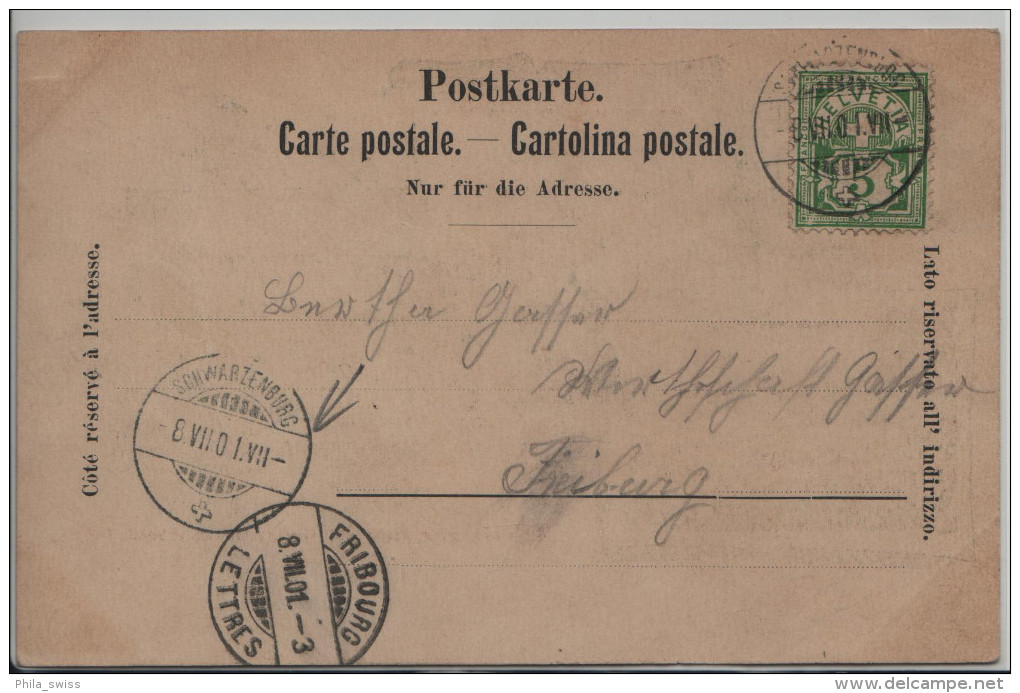 Postkarte.
Carte postale. — Cartolina postale.
Nur für die Adresse.
SCHWARZENBURG
8.VII.01.VII
HELVETIA
FRANCO
5
Côté réservé à l'adresse.
Lato riservato all' indirizzo.
Bertha Gasser
Wirthschaft Gasser
Freiburg
SCHWARZENBURG
8.VII.01.VII–
FRIBOURG
8.VII.01.–3
LETTRES
Phila_swiss
www.delcampe.net